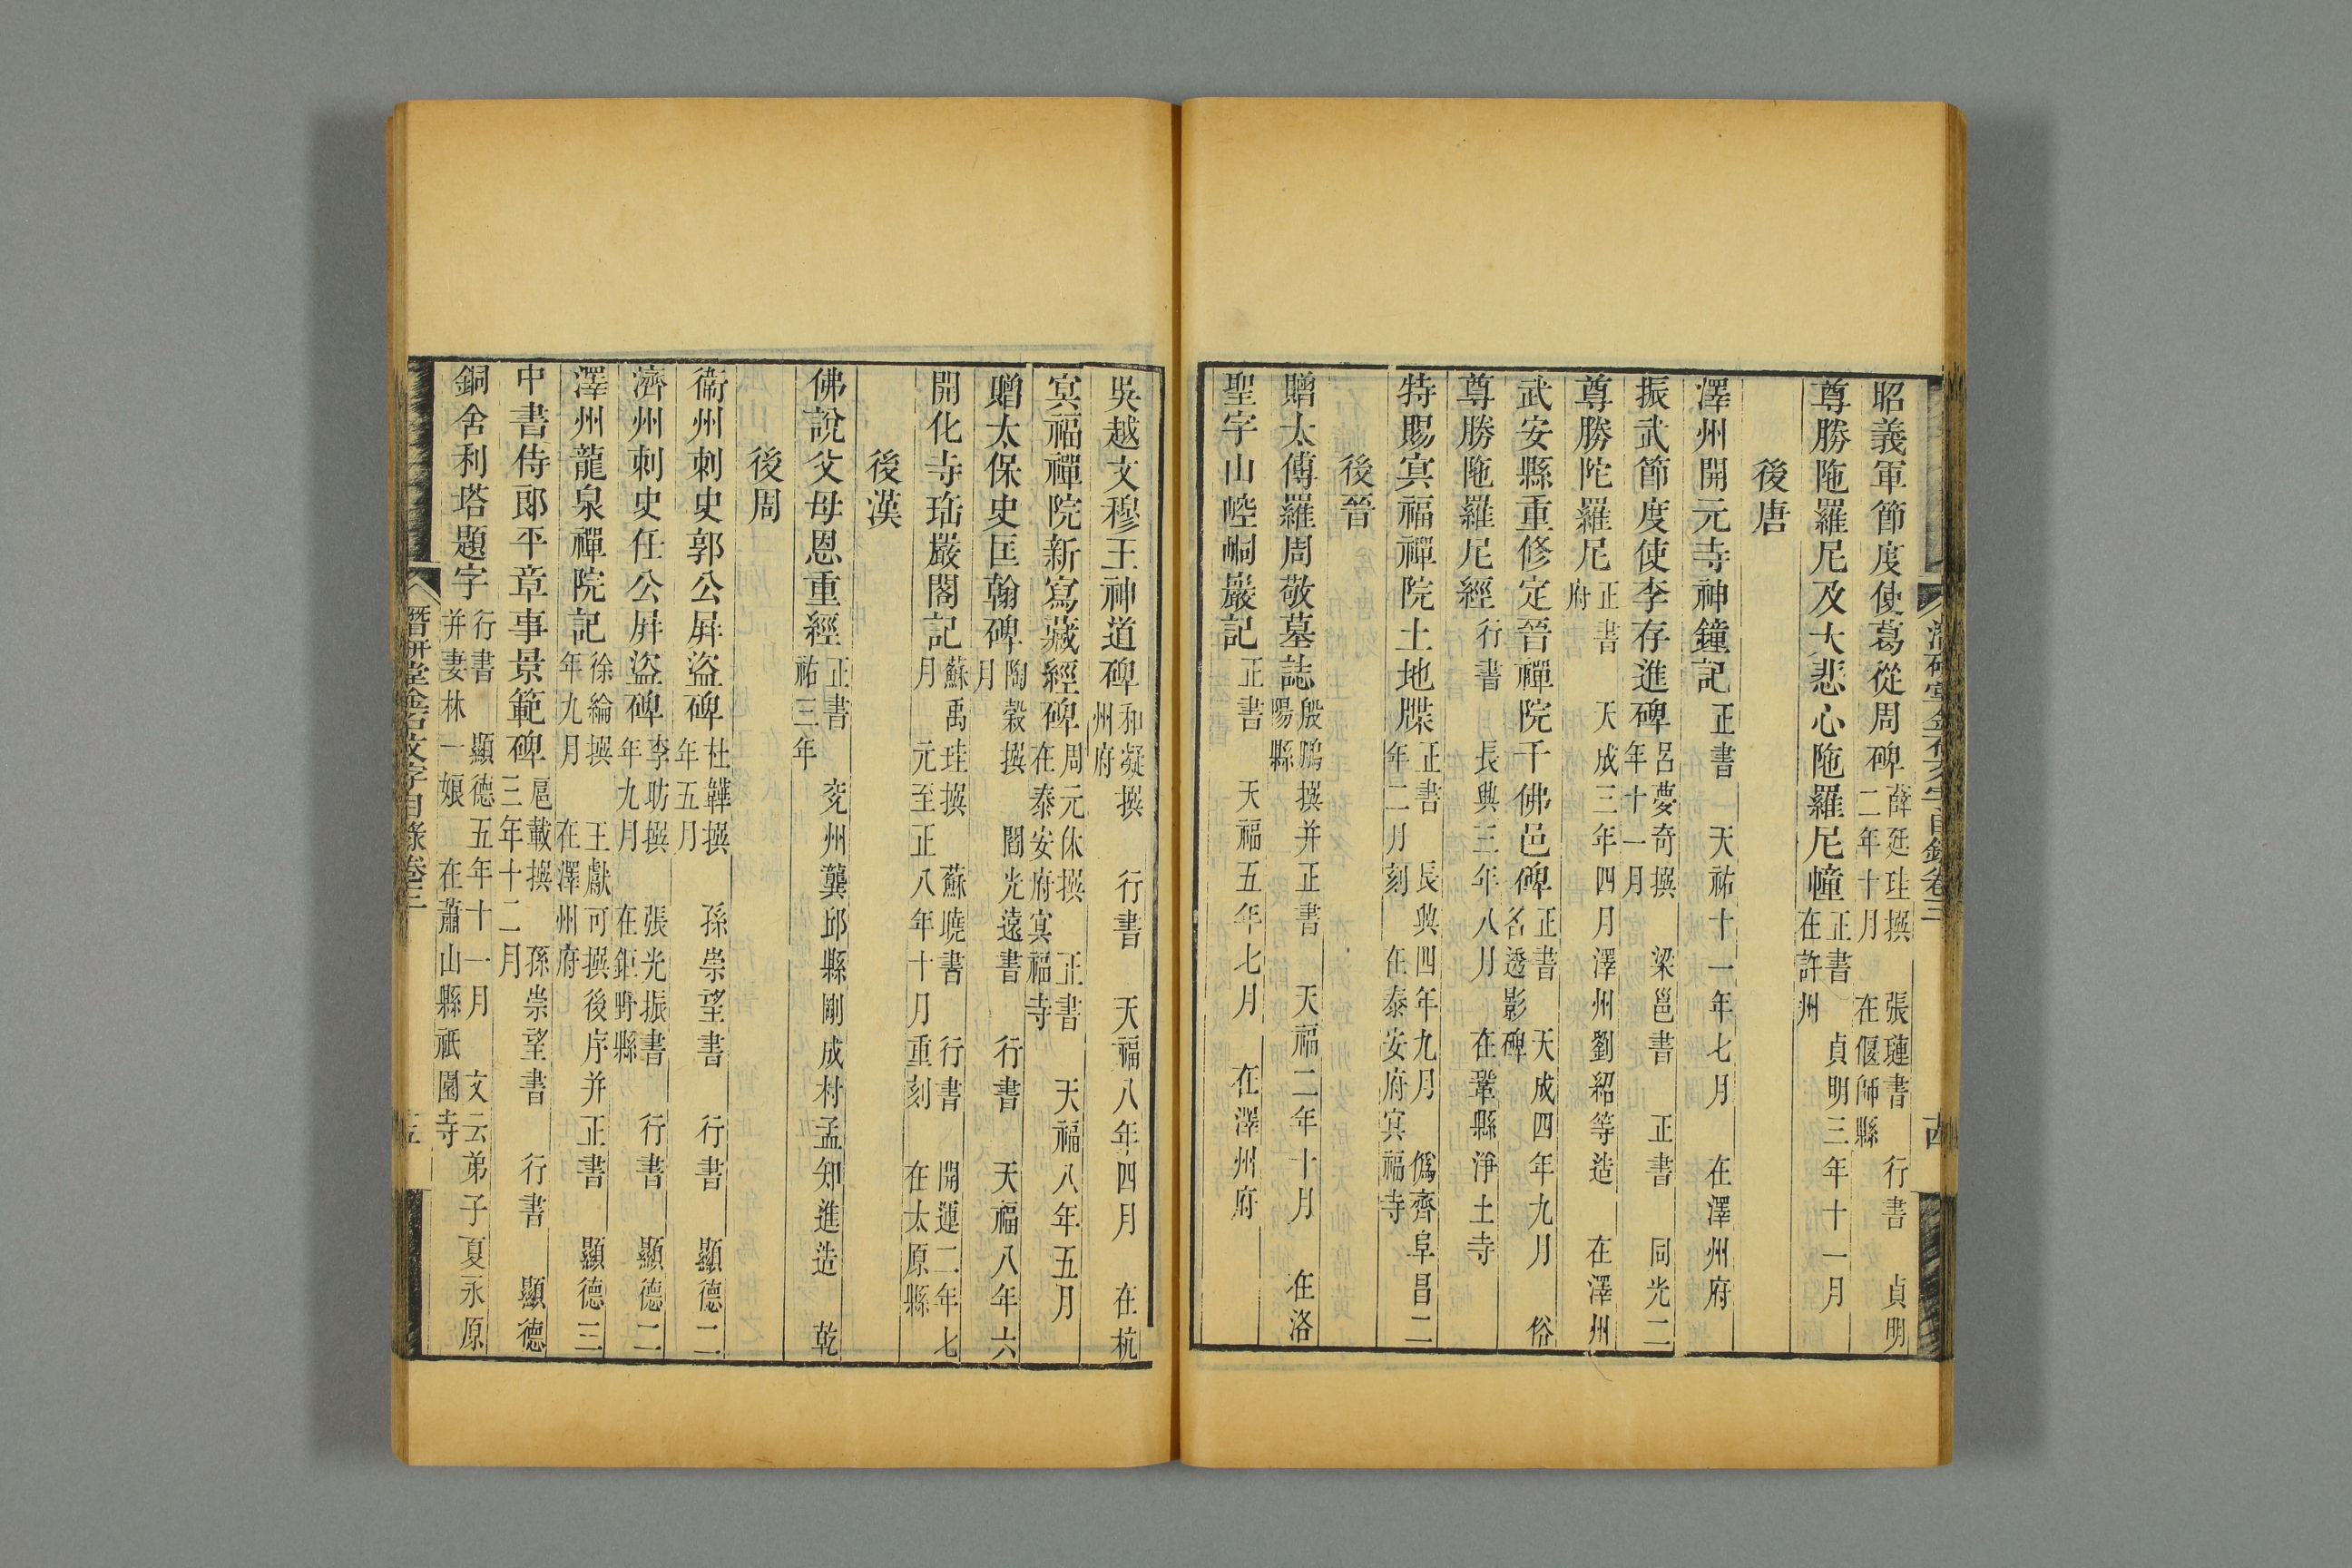 昭義軍節度使葛從周碑 薛廷珪撰 張璉書 行書 貞明二年十月 在偃師縣
尊勝陁羅尼及大悲心陁羅尼幢 正書 貞明三年十一月 在許州
後唐
澤州開元寺神鐘記 正書 天祐十一年七月 在澤州府
振武節度使李存進碑 呂夢奇撰 梁邕書 正書 同光二年十一月
尊勝陀羅尼 正書 天成三年四月澤州劉紹等造 在澤州府
武安縣重修定晉禪院千佛邑碑 正書 天成四年九月 俗名透影碑
尊勝陁羅尼經 行書 長興三年八月 在鞏縣淨土寺
特賜寘福禪院土地牒 正書 長興四年九月 僞齊阜昌二年二月刻 在泰安府寘福寺
後晉
贈太傅羅周敬墓誌 殷鵬撰并正書 天福二年十月 在洛陽縣
聖字山崆峒巖記 正書 天福五年七月 在澤州府
吳越文穆王神道碑 和凝撰 行書 天福八年四月 在杭州府
寘福禪院新寫藏經碑 周元休撰 正書 天福八年五月 在泰安府寘福寺
贈太保史匡翰碑 陶榖撰 閻光遠書 行書 天福八年六月
開化寺珤嚴閣記 蘇禹珪撰 蘇曉書 行書 開運二年七月 元至正八年十月重刻 在太原縣
後漢
佛說父母恩重經 正書 兖州龔邱縣剛成村孟知進造 乾祐三年
後周
衞州刺史郭公屏盜碑 杜韡撰 孫崇望書 行書 顯德二年五月
濟州刺史任公屏盜碑 李昉撰 張光振書 行書 顯德二年九月 在鉅野縣
澤州龍泉禪院記 徐綸撰 王獻可撰後序并正書 顯德三年九月 在澤州府
中書侍郎平章事景範碑 扈載撰 孫崇望書 行書 顯德三年十二月
銅舍利塔題字 行書 顯德五年十一月 文云弟子夏承原并妻林一娘 在蕭山縣祇園寺
潛研堂金石文字目錄卷三